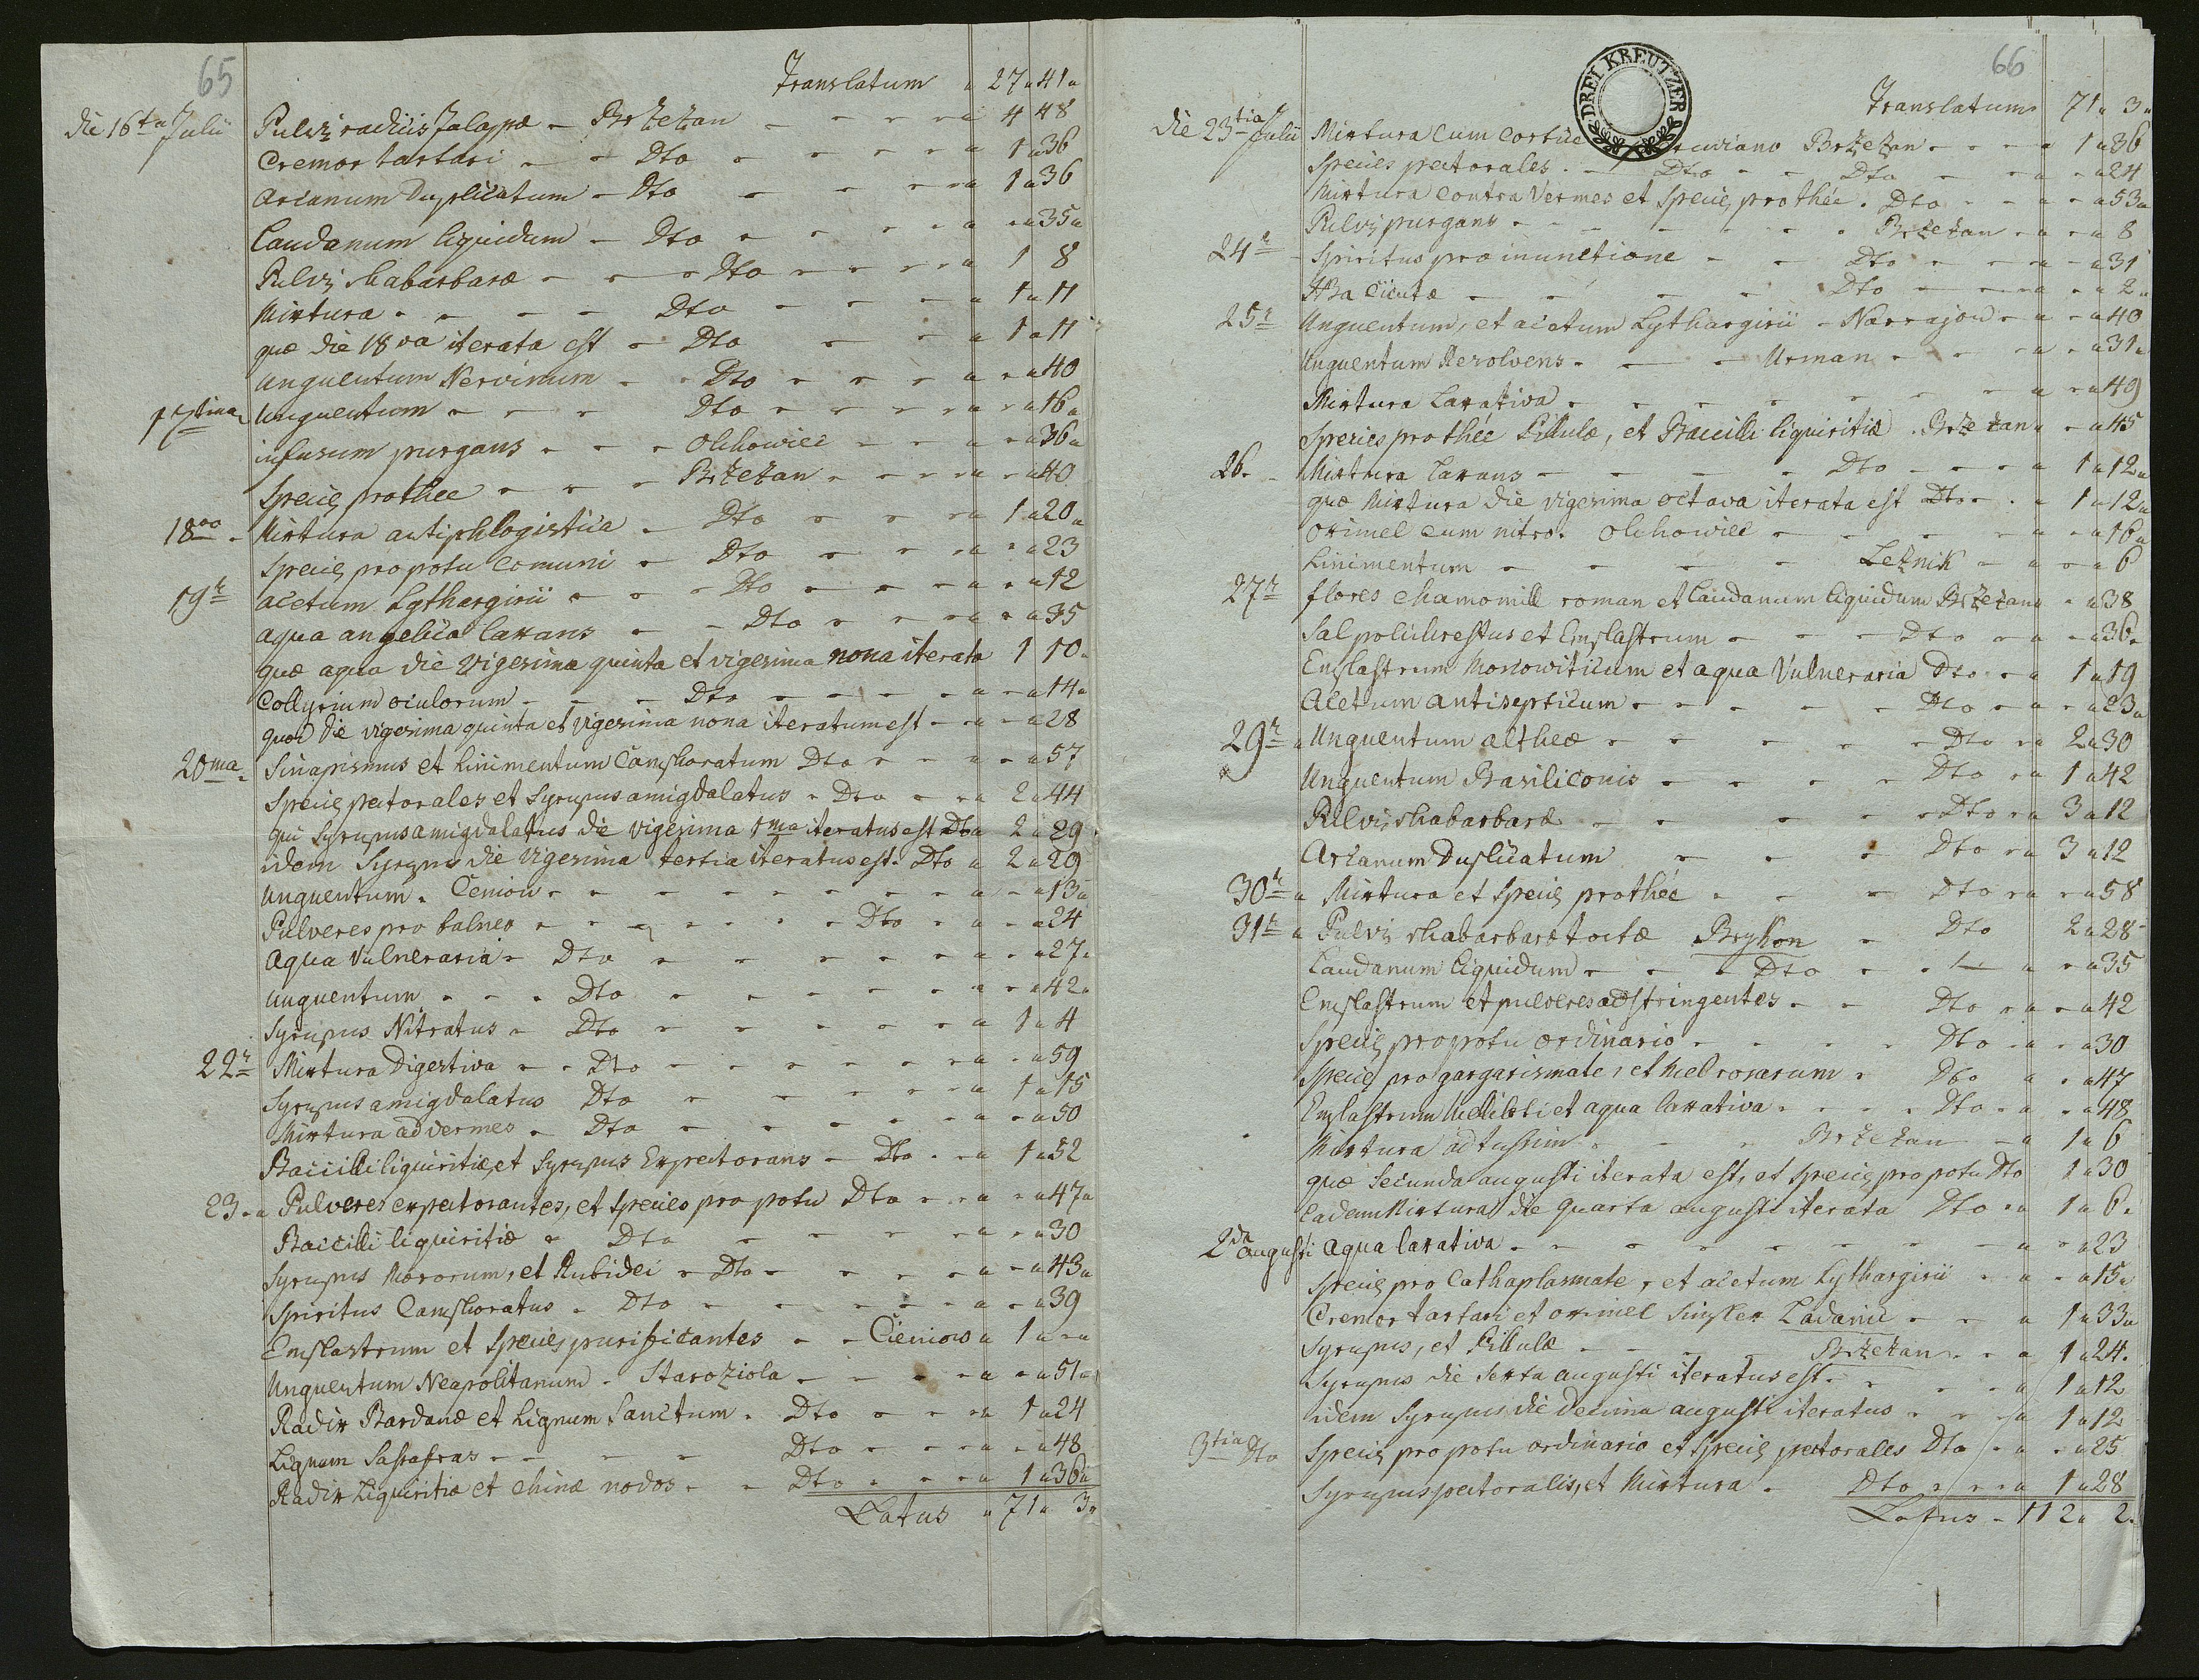 65
Translatum 27 41
die 16ta Julii Pulvis radicis Jalappæ - Brzeżan 4 48
Cremor tartari - Dto 1 36
Arcanum Duplicatum - Dto 1 36
Laudanum liquidum - Dto - 35
Pulvis rhabarbaræ - Dto 1 8
Mixtura - Dto 1 11
quæ die 18va iterata est - Dto 1 11
Unguentum Nervinum - Dto - 40
17tima Unguentum - Dto - 16
infusum purgans - Olchowiec - 36
Species prothee - Brzeżan - 40
18va Mixtura antiphlogistica - Dto 1 20
Species pro potu comuni - Dto - 23
19 acetum Lythargirii - Dto - 12
aqua angelica laxans - Dto - 35
quæ aqua die vigesima quinta et vigesima nona iterata 1 10
Collyrium oculorum - Dto - 14
quod die vigesima quinta et vigesima nona iteratum est - 28
20ma Sinapismus et Linimentum Camphoratum Dto - 57
Species pectorales et Syrupus amigdalatus - Dto 2 44
qui Syrupus amigdalatus die vigesima 1ma iteratus est Dto 2 29
idem Syrupus die vigesima tertia iteratus est. Dto 2 29
Unguentum. Ceniow - 13
Pulveres pro balneo - Dto - 24
Aqua Vulneraria - Dto - 27
Unguentum - Dto - 42
Syrupus Nitratus - Dto 1 4
22 Mixtura Digestiva - Dto - 59
Syrupus amigdalatus Dto 1 15
Mixtura ad vermes - Dto - 50
Baccilli liquiritiæ, et Syrupus Expectorans - Dto 1 52
23 Pulveres expectorantes, et species pro potu Dto - 47
Baccilli liquiritiæ - Dto - 30
Syrupus Mororum, et Rubidei - Dto - 43
Spiritus Camphoratus - Dto - 39
Emplastrum et Species purificantes - Cieniow 1 -
Unguentum Neapolitanum - Staroziola - 51
Radix Bardanæ et Lignum Sanctum - Dto 1 24
Lignum Sassafras - Dto - 48
Radix Liquiritiæ et chinæ nodos - Dto 1 36
Latus 71 3
66
DREI KREUTZER
Translatum 71 3
die 23tia Julii Mixtura cum cortice ruviano Brzeżan 1 36
Species pectorales - Dto - Dto - 24
Mixtura contra Vermes et Species pro thée. Dto - 53
Pulvis purgans - Brzeżan - 8
24 Spiritus pro inunctione - Dto - 31
Hba Cicutæ - Dto - 2
25 Unguentum, et acetum Lythargirii - Narrajow - 40
Unguentum Resolvens - Urman - 31
Mixtura Laxativa - 49
Species pro thée Pillulæ, et Baccilli liquiritiæ. Brzeżan - 45
26 Mixtura Laxans - Dto 1 12
quæ Mixtura die vigesima octava iterata est Dto 1 12
Oximel cum nitro. Olchowiec - 16
Linimentum - Leżnik - 6
27 flores chamomill roman et Laudanum liquidum Brzeżan - 38
Sal polichrestus et Emplastrum - Dto - 36
Emplastrum Norowiticum et aqua Vulneraria Dto 1 19
Acetum antisepticum - Dto - 23
29 Unguentum altheæ - Dto 2 30
Unguentum Basiliconis - Dto 1 42
Pulvis rhabarbaræ - Dto 3 12
Arcanum Duplicatum - Dto 3 12
30 Mixtura et Species prothée - Dto - 58
31 Pulvis rhabarbaræ toctæ Brykon - Dto 2 28
Laudanum liquidum - Dto - 35
Emplastrum et pulveres adstringentes - Dto - 42
Species pro potu ordinario - Dto - 30
Species pro gargarismate, et Mel rosarum - Dto - 47
Emplastrum Meliloti et aqua laxativa - Dto - 48
Mixtura ad tussim - Brzeżan 1 6
quæ Secunda augusti iterata est, et species pro potu Dto 1 30
Eadem Mixtura die quarta augusti iterata Dto 1 6
2da augusti Aqua laxativa - 23
Species pro Cathaplasmate, et acetum Lythargirii - 15
Cremor tartari et oximel Simplex Ladanic 1 33
Syrupus, et Pillulæ - Brzeżan 1 24
Syrupus die Sexta augusti iteratus est 1 12
idem Syrupus die Decima augusti iteratus 1 12
3tia Dto Species pro potu ordinario et Species pectorales Dto - 25
Syrupus pectoralis, et Mixtura. Dto 1 28
Latus 112 2